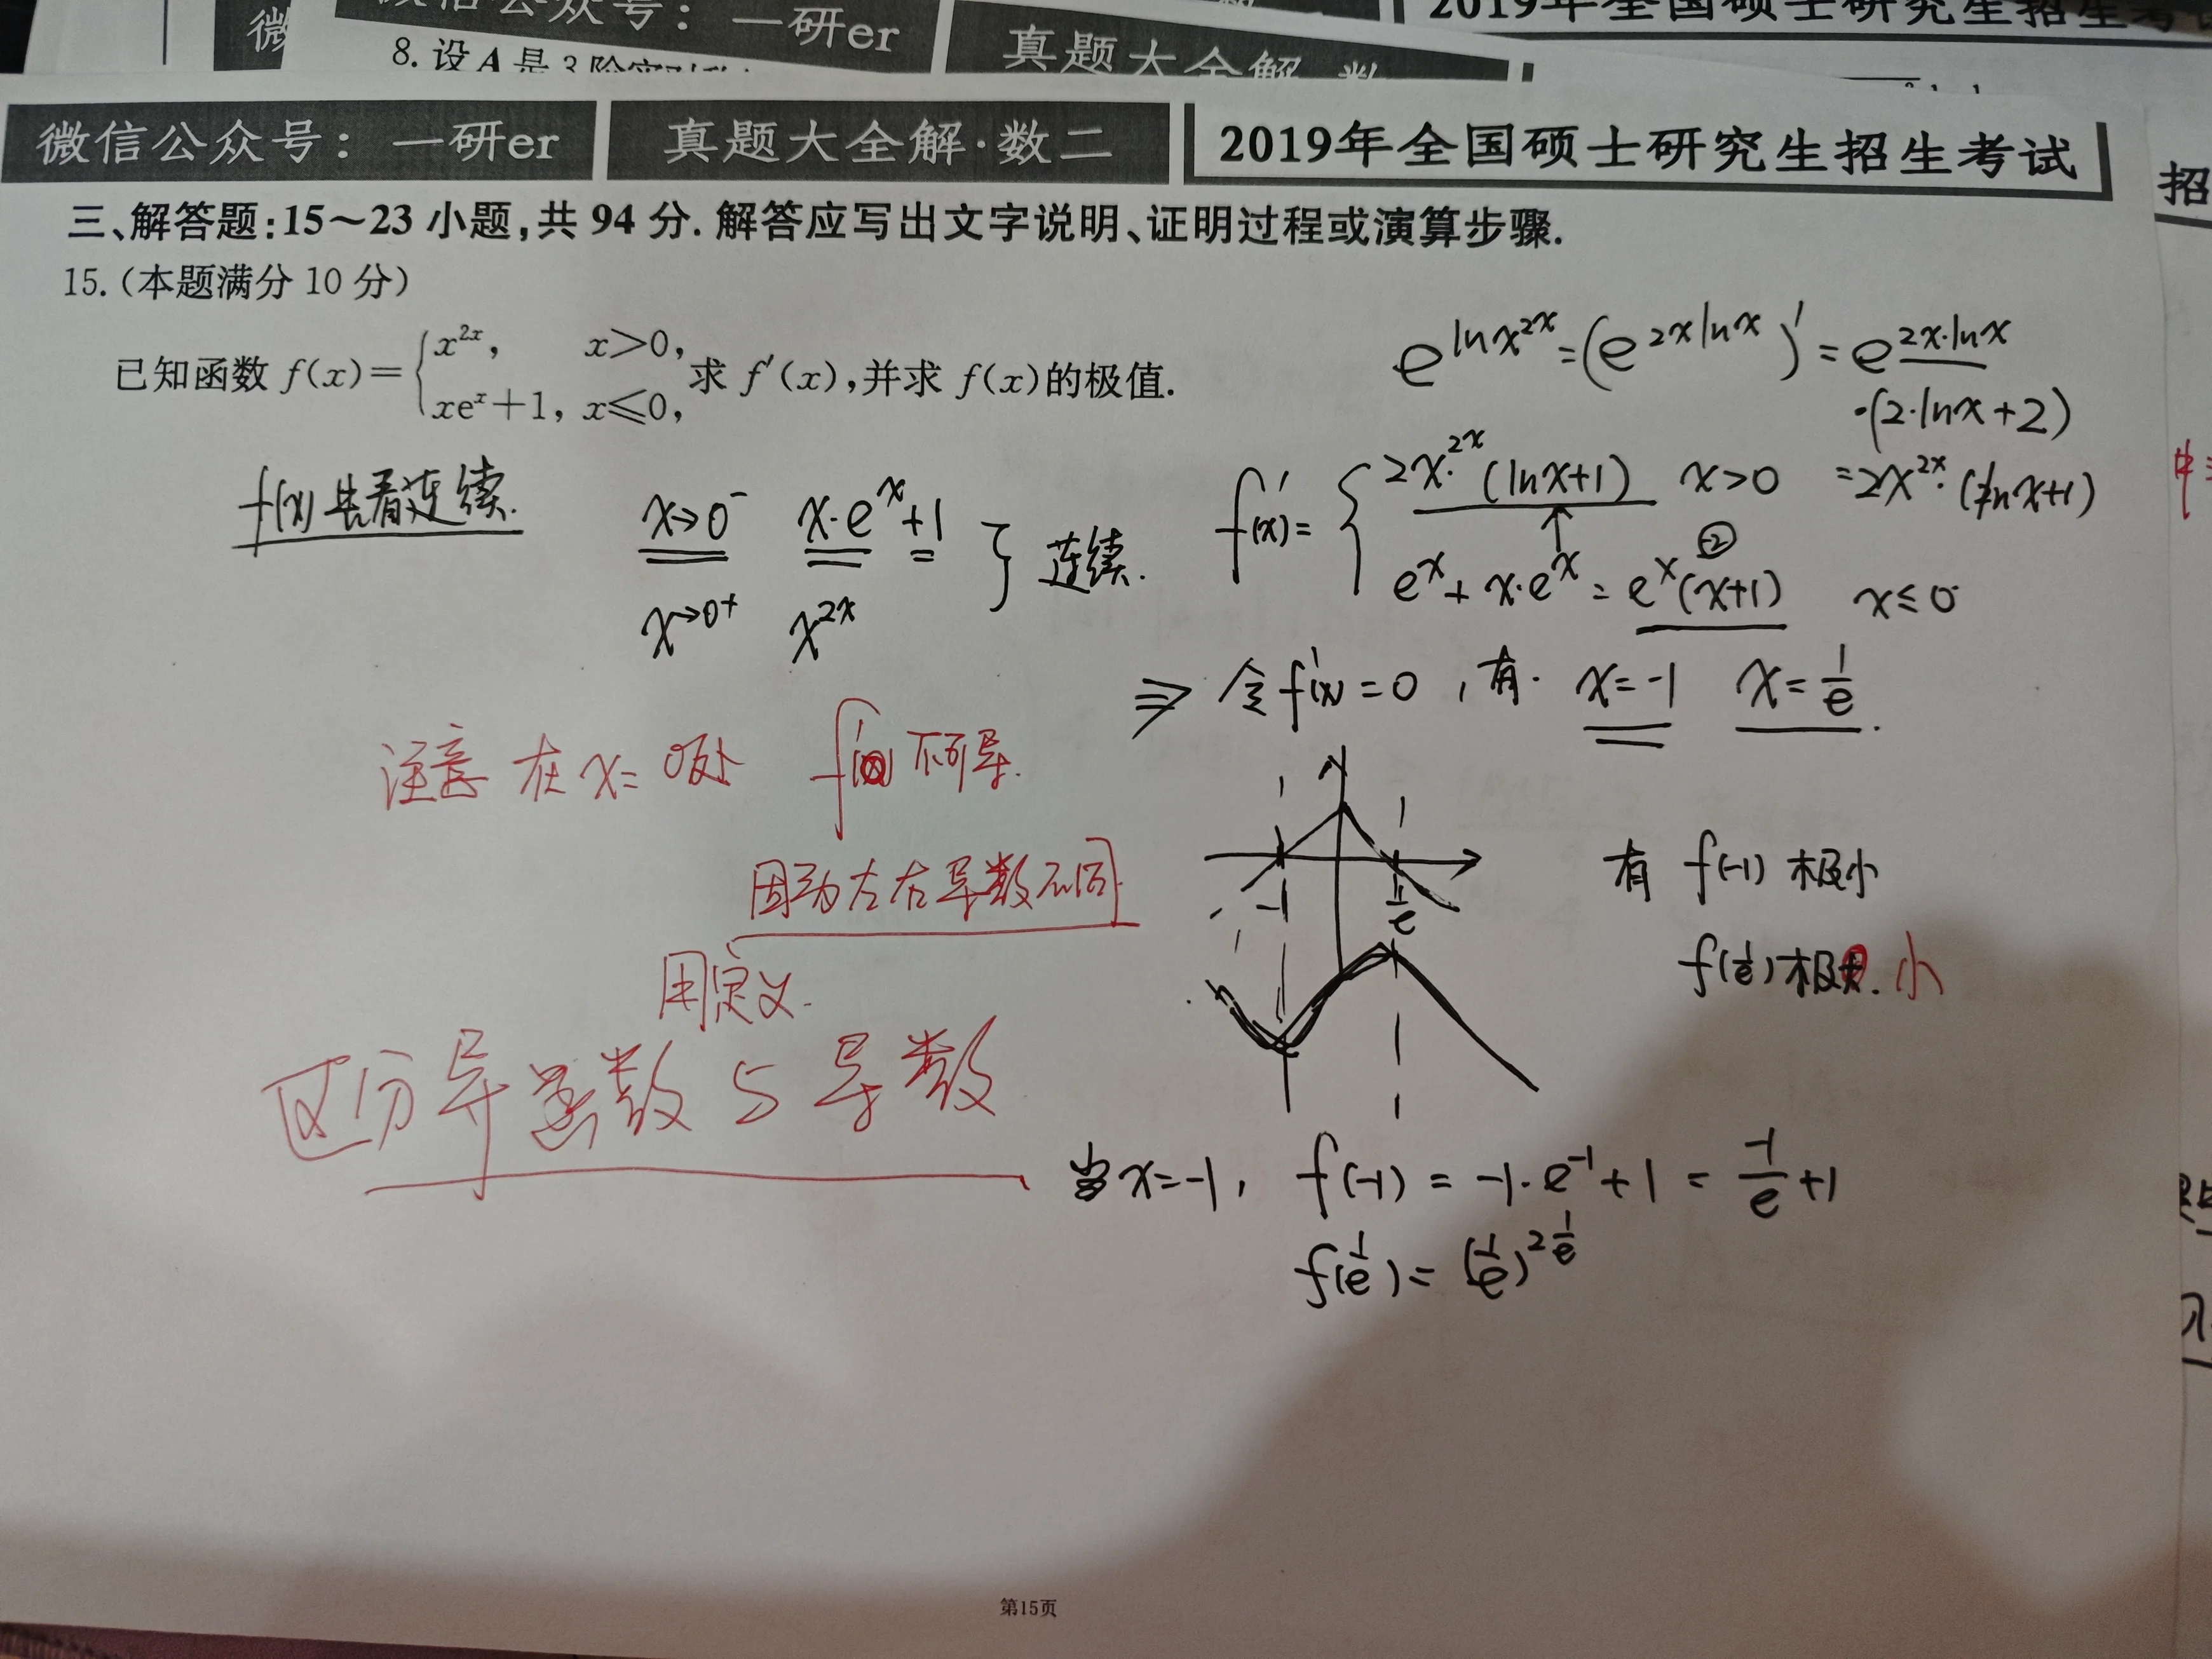 2019年全国硕士研究生招生考
微信公众号：一研er
8. 设A是3阶实对称
真题大全解·数
微信公众号：一研er 真题大全解·数二 2019年全国硕士研究生招生考试
招
三、解答题:15～23小题,共94分.解答应写出文字说明、证明过程或演算步骤.
15.(本题满分10分)
已知函数 f(x)={x^{2x}, x>0, xe^x+1, x≤0, 求 f'(x),并求 f(x)的极值.
e^{lnx^{2x}}=(e^{2xlnx})'=e^{2x·lnx}
·(2·lnx+2)
=2x^{2x}·(lnx+1)
f(x) 先看连续.
x→0^- x·e^x+1
x→0^+ x^{2x}
} 连续.
f'(x)={2x·^{2x}(lnx+1) x>0
②
e^x+x·e^x=e^x(x+1) x≤0
⇒ 令f'(x)=0,有. x=-1 x=1/e.
注意 在x=0处 f'(x)不可导.
因为左右导数不同.
用定义.
区分导函数与导数
-1 1/e
有 f(-1) 极小
f(1/e)极. 小
当x=-1, f(-1)=-1·e^{-1}+1=-1/e+1
f(1/e)=(1/e)^{2 1/e}
第15页